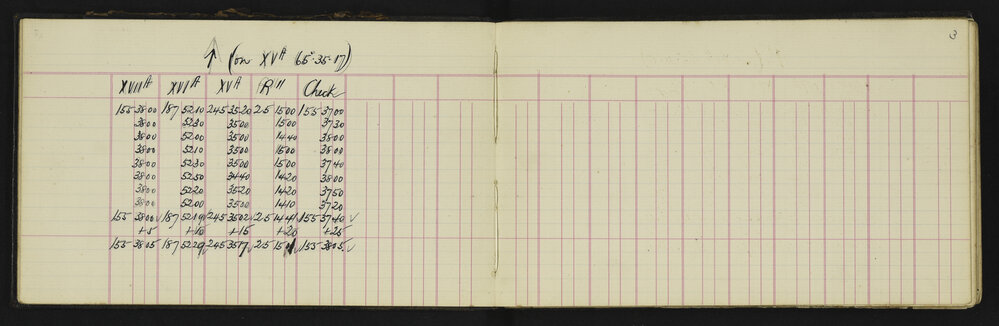 3
↑ (on XV^A 65°-35-17)
XVII^A XVI^A XV^A R^II Check
155 38 00 187 52 10 245 35 20 25 15 00 155 37 00
38 00 52 30 35 00 15 00 37 30
38 00 52 00 35 00 14 40 38 00
38 00 52 10 35 00 15 00 38 00
38 00 52 30 35 00 15 00 37 40
38 00 52 50 34 40 14 20 38 00
38 00 52 20 35 20 14 20 37 50
38 00 52 00 35 00 14 10 37 20
155 38 00 ✓ 187 52 19 ✓ 245 35 02 ✓ 25 14 41 ✓ 155 37 40 ✓
+5 +10 +15 +20 +25
155 38 05 187 52 29 ✓ 245 35 17 ✓ 25 15 01 ✓ 155 38 05 ✓